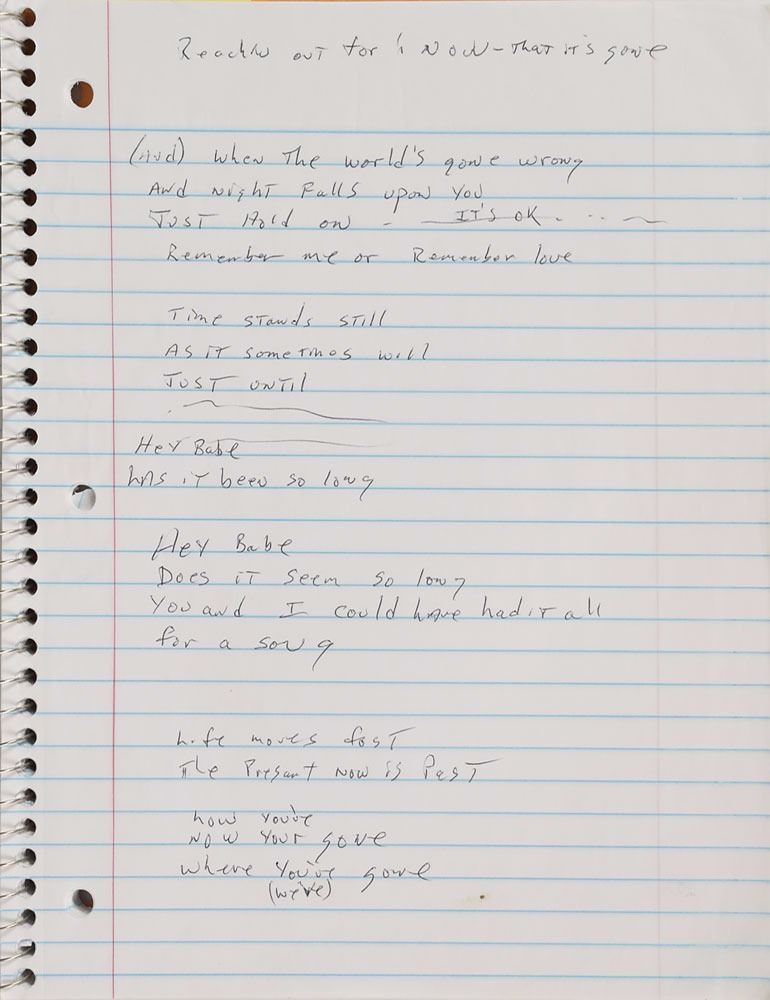 Reachin out for 1 NOW - That it's gone
(And) when The world's gone wrong
And night Falls upon You
JUST Hold on - IT'S OK
Remember me or Remember love
Time stands still
As it sometimes will
JUST UNTIL
Hey Babe
has it been so long
Hey Babe
Does it seem so long
You and I could have had it all
for a song
Life moves fast
The Present now is Past
how you've
now your gone
where You've gone
(we've)